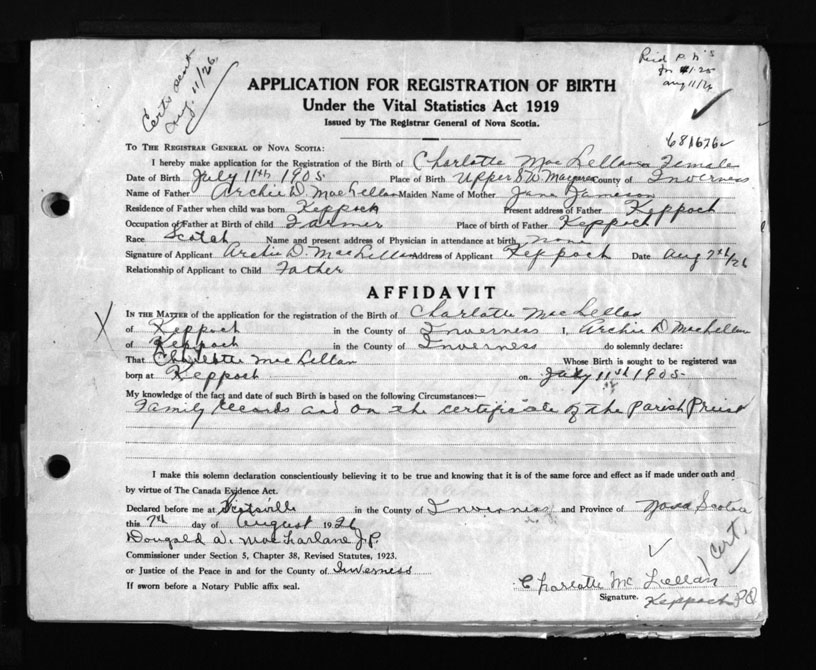 Certs sent
Aug. 11/26
Aug 11/26
APPLICATION FOR REGISTRATION OF BIRTH
Under the Vital Statistics Act 1919
Issued by The Registrar General of Nova Scotia.
681676
TO THE REGISTRAR GENERAL OF NOVA SCOTIA:
I hereby make application for the Registration of the Birth of Charlotte MacLellan Female
Date of Birth July 11th 1905 Place of Birth Upper S.W. County of Inverness
Name of Father Archie D. MacLellan Maiden Name of Mother Jane Jameson
Residence of Father when child was born Keppoch Present address of Father Keppoch
Occupation of Father at Birth of child Farmer Place of birth of Father Keppoch
Race Scotch Name and present address of Physician in attendance at birth none
Signature of Applicant Archie D. MacLellan Address of Applicant Keppoch Date Aug 7th/26
Relationship of Applicant to Child Father
AFFIDAVIT
IN THE MATTER of the application for the registration of the Birth of Charlotte MacLellan
of Keppoch in the County of Inverness I, Archie D MacLellan
of Keppoch in the County of Inverness do solemnly declare:
That Charlotte MacLellan Whose Birth is sought to be registered was
born at Keppoch on July 11th 1905
My knowledge of the fact and date of such Birth is based on the following Circumstances:—
Family records and on the certificate of the Parish Priest
I make this solemn declaration conscientiously believing it to be true and knowing that it is of the same force and effect as if made under oath and
by virtue of The Canada Evidence Act.
Declared before me at Scotsville in the County of Inverness and Province of Nova Scotia
this 7th day of August 1926
Dougald A. MacFarlane J.P.
Commissioner under Section 5, Chapter 38, Revised Statutes, 1923.
or Justice of the Peace in and for the County of Inverness
If sworn before a Notary Public affix seal.
cert.
Charlotte McLellan
Signature. Keppoch PO